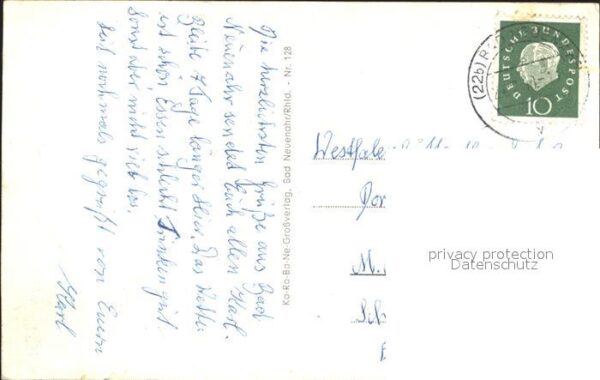 Die herzlichsten Grüße aus Bad
Neuenahr sendet Euch allen Karl.
Bleibe 4 Tage länger hier. Das Wetter
ist schön Essen schlecht Trinken gut
sonst aber nicht viel los.
Seit nochmals gegrüßt von Euern
Karl
Ka-Ro-Ba-Ne-Großverlag, Bad Neuenahr/Rhld. - Nr. 128
(22b)
DEUTSCHE BUNDESPOST
10
Westfale
Dor
M.
privacy protection
Datenschutz